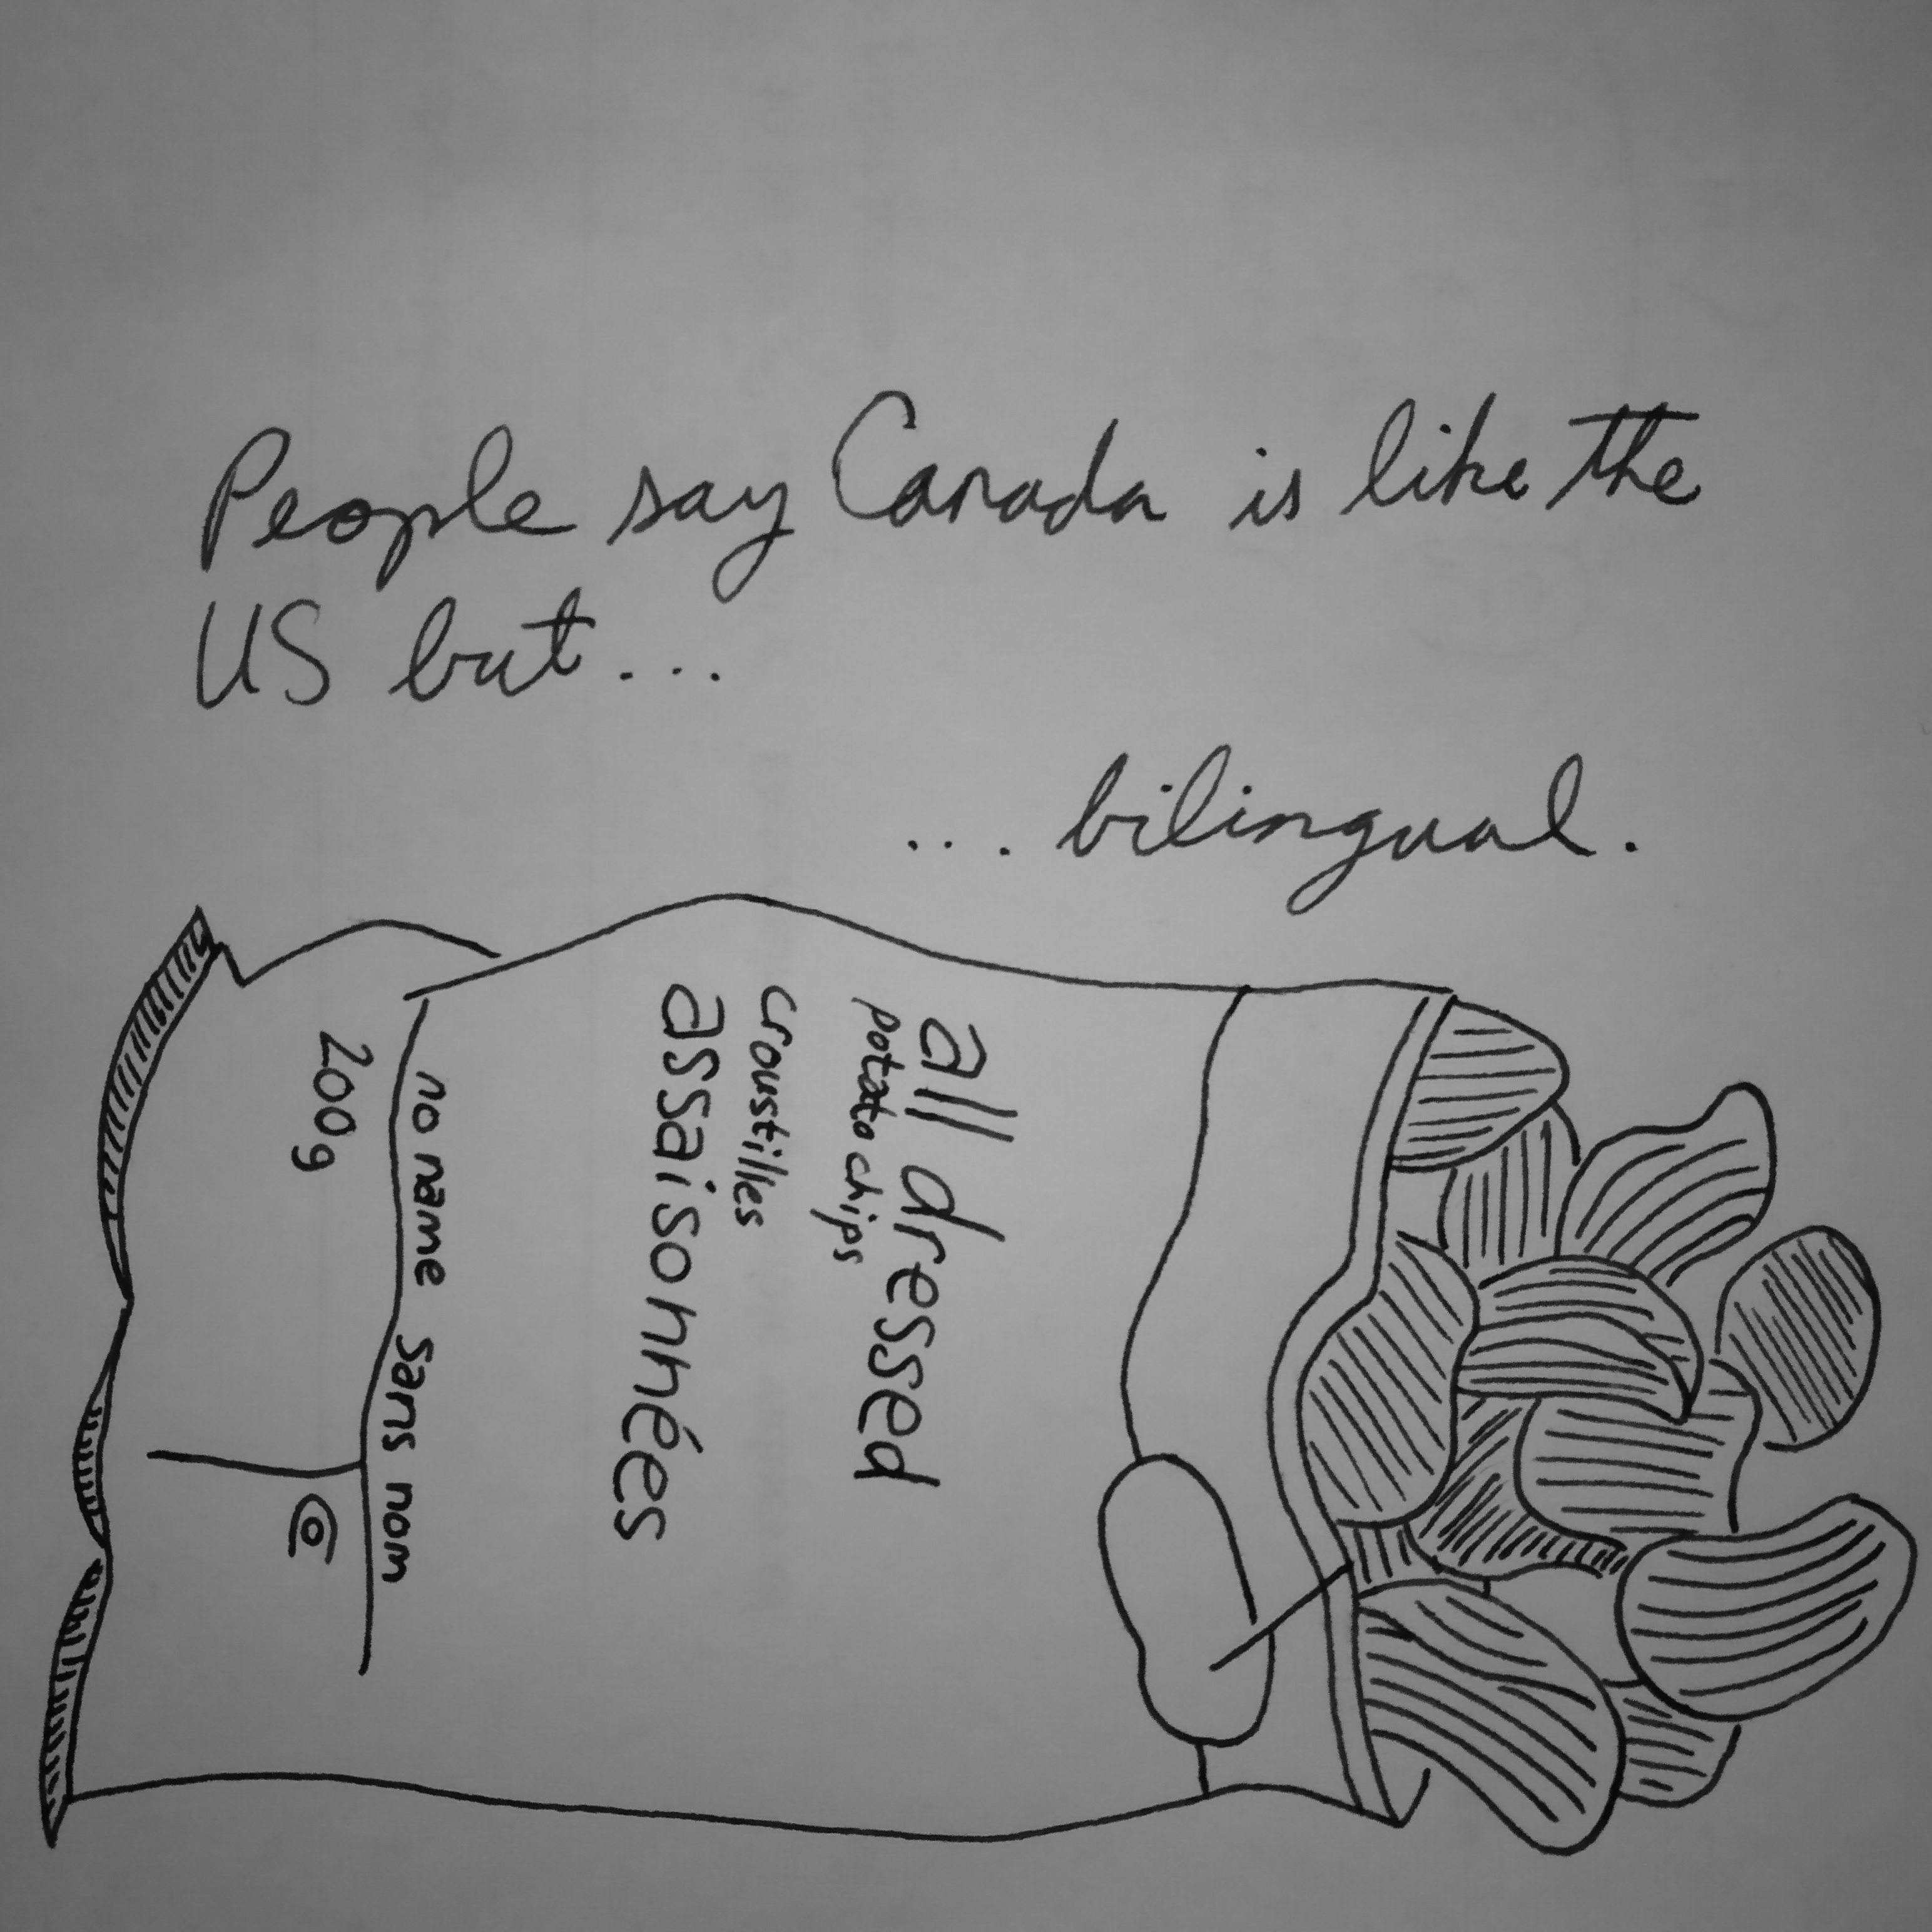 People say Canada is like the
US but...
... bilingual.
all dressed
potato chips
croustilles
assaisonnées
no name sans nom
200g